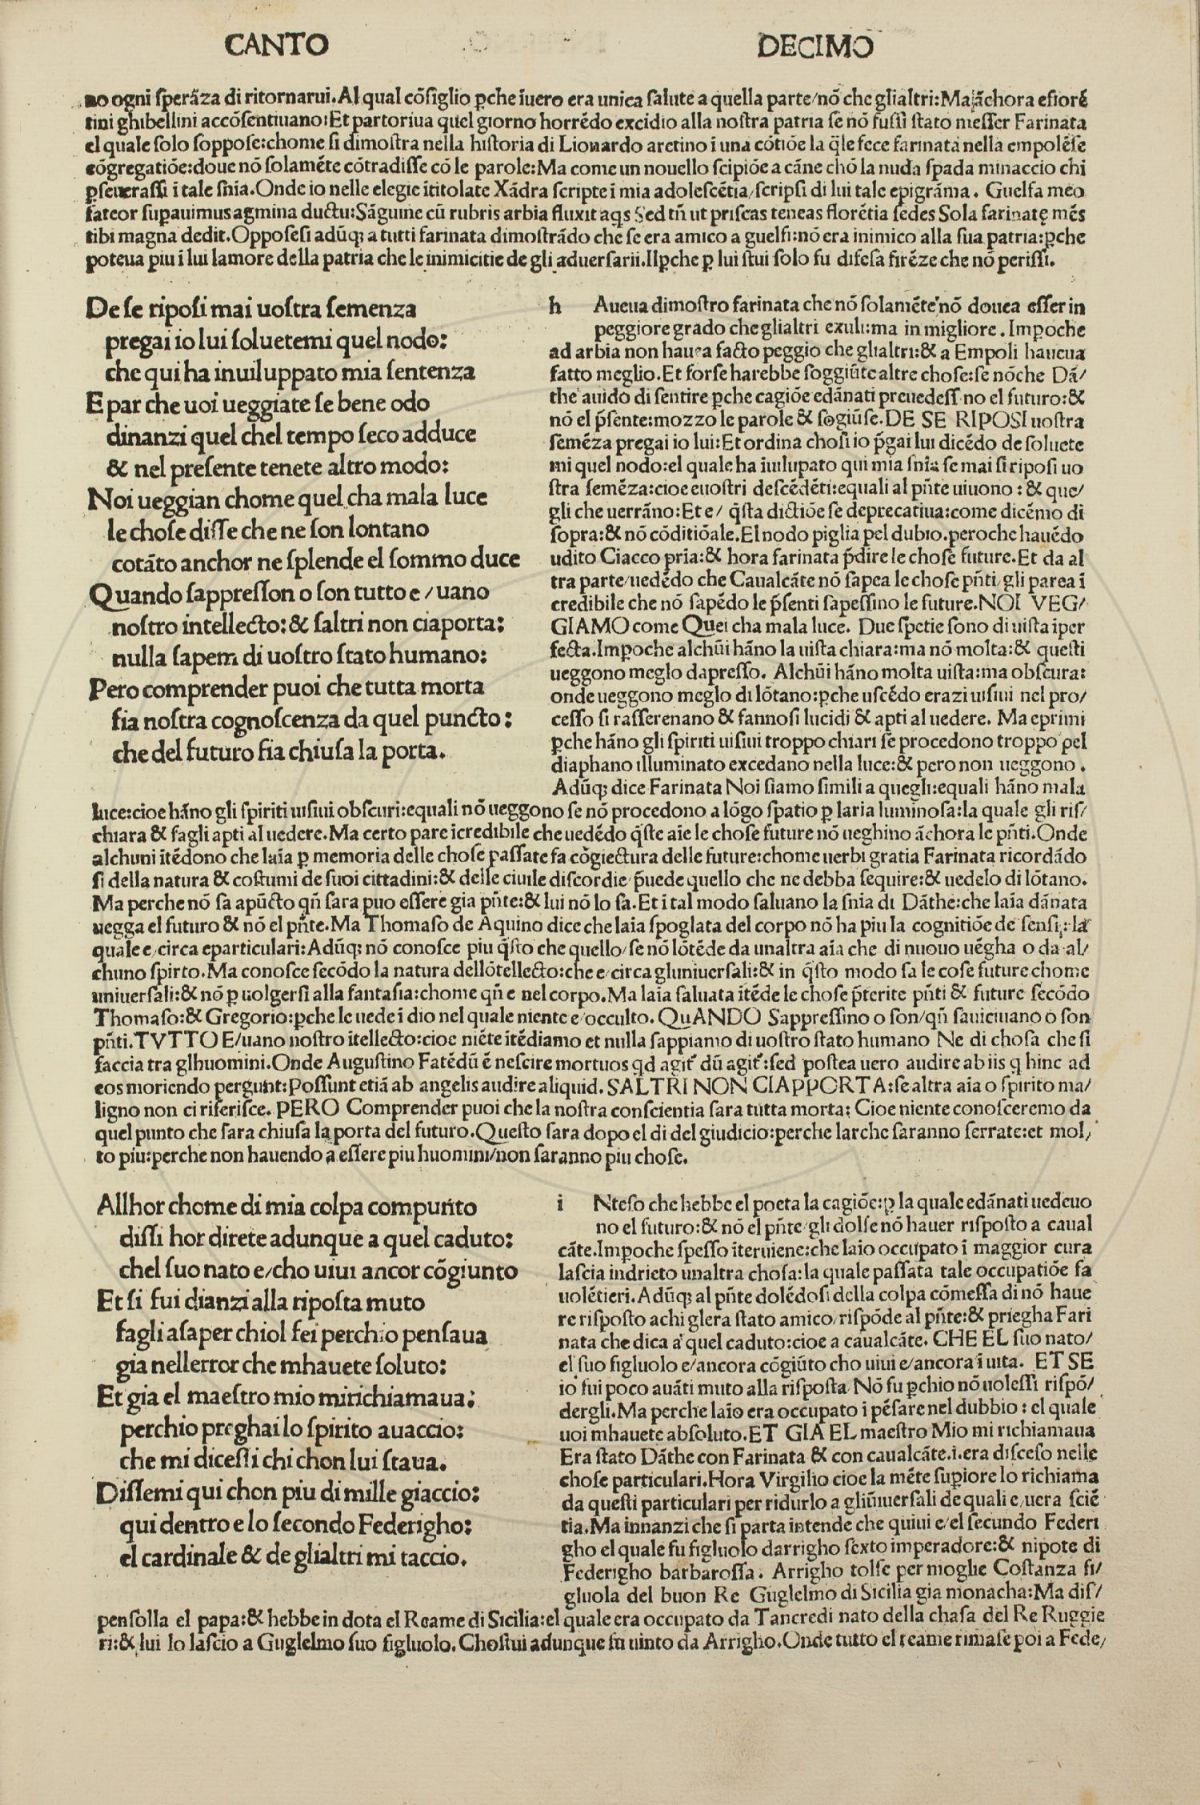 CANTO DECIMO
no ogni sperãza di ritornarui.Al qual cõsiglio ꝑche ĩuero era unica salute a quella parte/nõ che glialtri:Ma ãchora efiorẽ
tini ghibellini accõsentiuano:Et partoriua quel giorno horrẽdo excidio alla nostra patria se nõ fussi stato messer Farinata
el quale solo soppose:chome si dimostra nella historia di Lionardo aretino ĩ una cõtiõe la q̃le fece farinata nella empolẽse
cõgregatiõe:doue nõ solamẽte cõtradisse cõ le parole:Ma come un nouello scipiõe a cãne chõ la nuda spada minaccio chi
ꝑseuerassi ĩ tale sñia.Onde io nelle elegie ĩtitolate Xãdra scripte ĩ mia adolescẽtia/scripsi di lui tale epigrãma. Guelfa meo
fateor supauimus agmina ductu:Sãguine cũ rubris arbia fluxit aqs Sed tñ ut priscas teneas florẽtia sedes Sola farinatę mẽs
tibi magna dedit.Opposesi adũq; a tutti farinata dimostrãdo che se era amico a guelfi:nõ era inimico alla sua patria:ꝑche
poteua piu ĩ lui lamore della patria che le inimicitie de gli aduersarii.Ilꝑche ꝑ lui stui solo fu difesa firẽze che nõ perissi.
De se riposi mai uostra semenza
pregai io lui soluetemi quel nodo:
che qui ha inuiluppato mia sentenza
E par che uoi ueggiate se bene odo
dinanzi quel chel tempo seco adduce
& nel presente tenete altro modo:
Noi ueggian chome quel cha mala luce
le chose disse che ne son lontano
cotãto anchor ne splende el sommo duce
Quando sappresson o son tutto e/uano
nostro intellecto:& saltri non ciaporta:
nulla sapem di uostro stato humano:
Pero comprender puoi che tutta morta
fia nostra cognoscenza da quel puncto:
che del futuro fia chiusa la porta.
h Aueua dimostro farinata che nõ solamẽte nõ douea esser in
peggiore grado che glialtri exuli:ma in migliore. Impoche
ad arbia non hauea facto peggio che glialtri:& a Empoli haueua
fatto meglio.Et forse harebbe soggiũte altre chose:se nõche Dã/
the auido di sentire ꝑche cagiõe edãnati preuedessino el futuro:&
nõ el p̃sente:mozzo le parole & sogiũse.DE SE RIPOSI uostra
semẽza pregai io lui:Et ordina chosi io p̃gai lui dicẽdo de soluete
mi quel nodo:el quale ha ĩuilupato qui mia sñia se mai si riposi uo
stra semẽza:cioe euostri descẽdẽti:equali al pñte uiuono: & que/
gli che uerrãno:Et e/ q̃sta dictiõe se deprecatiua:come dicẽmo di
sopra:& nõ cõditiõale.El nodo piglia pel dubio.peroche hauẽdo
udito Ciacco pria:& hora farinata p̃dire le chose future.Et da al
tra parte/uedẽdo che Caualcãte nõ sapea le chose pñti/gli parea ĩ
credibile che nõ sapẽdo le p̃senti sapessino le future.NOI VEG/
GIAMO come Quei cha mala luce. Due spetie sono di uista ĩper
fecta.Impoche alchũi hãno la uista chiara:ma nõ molta:& questi
ueggono meglo dapresso. Alchũi hãno molta uista:ma obscura:
onde ueggono meglo di lõtano:ꝑche uscẽdo erazi uisiui nel pro/
cesso si rasserenano & fannosi lucidi & apti al uedere. Ma eprimi
ꝑche hãno gli spiriti uisiui troppo chiari se procedono troppo pel
diaphano illuminato excedano nella luce:& pero non ueggono.
Adũq; dice Farinata Noi siamo simili a quegli:equali hãno mala
luce:cioe hãno gli spiriti uisiui obscuri:equali nõ ueggono se nõ procedono a lõgo spatio ꝑ laria luminosa:la quale gli ris/
chiara & fagli apti al uedere.Ma certo pare ĩcredibile che uedẽdo q̃ste aĩe le chose future nõ ueghino ãchora le pñti.Onde
alchuni ĩtẽdono che laĩa ꝑ memoria delle chose passate fa cõgiectura delle future:chome uerbi gratia Farinata ricordãdo
si della natura & costumi de suoi cittadini:& delle ciuile discordie p̃uede quello che ne debba sequire:& uedelo di lõtano.
Ma perche nõ sa apũcto qñ sara puo essere gia pñte:& lui nõ lo sa.Et ĩ tal modo saluano la sñia di Dãthe:che laĩa dãnata
uegga el futuro & nõ el pñte.Ma Thomaso de Aquino dice che laĩa spoglata del corpo nõ ha piu la cognitiõe de sensi:la
quale e/circa eparticulari:Adũq; nõ conosce piu q̃sto che quello/se nõ lõtẽde da unaltra aĩa che di nuouo uẽgha o da al/
chuno spirto.Ma conosce secõdo la natura dellõtellecto:che e/circa gluniuersali:& in q̃sto modo sa le cose future chome
uniuersali:& nõ ꝑ uolgersi alla fantasia:chome qñ e nel corpo.Ma laĩa saluata ĩtẽde le chose p̃terite pñti & future secõdo
Thomaso:& Gregorio:ꝑche le uede ĩ dio nel quale niente e/occulto. QuANDO Sappressino o son/qñ sauicinano o son
pñti.TVTTO E/uano nostro ĩtellecto:cioe niẽte ĩtẽdiamo et nulla sappiamo di uostro stato humano Ne di chosa che si
faccia tra glhuomini.Onde Augustino Fatẽdũ ẽ nescire mortuos qd agit᷒ dũ agit᷒:sed postea uero audire ab iis q hinc ad
eos moriendo pergunt:Possunt etiã ab angelis audire aliquid. SALTRI NON CIAPPORTA:se altra aĩa o spirito ma/
ligno non ci riferisce. PERO Comprender puoi che la nostra conscientia sara tutta morta: Cioe niente conosceremo da
quel punto che sara chiusa la porta del futuro.Questo sara dopo el di del giudicio:perche larche saranno serrate:et mol/
to piu:perche non hauendo a essere piu huomini/non saranno piu chose.
Allhor chome di mia colpa compunto
dissi hor direte adunque a quel caduto:
chel suo nato e/cho uiui ancor cõgiunto
Et si fui dianzi alla riposta muto
fagli asaper chiol fei perchio pensaua
gia nellerror che mhauete soluto:
Et gia el maestro mio mirichiamaua:
perchio preghai lo spirito auaccio:
che mi dicessi chi chon lui staua.
Dissemi qui chon piu di mille giaccio:
qui dentro e lo secondo Federigho:
el cardinale & de glialtri mi taccio.
i Nteso che hebbe el poeta la cagiõe:ꝑ la quale edãnati uedeuo
no el futuro:& nõ el pñte/gli dolse nõ hauer risposto a caual
cãte.Impoche spesso ĩteruiene:che laĩo occupato ĩ maggior cura
lascia indrieto unaltra chosa:la quale passata tale occupatiõe fa
uolẽtieri.Adũq; al pñte dolẽdosi della colpa cõmessa di nõ haue
re risposto achi glera stato amico/rispõde al pñte:& priegha Fari
nata che dica a quel caduto:cioe a caualcãte. CHE EL suo nato/
el suo figluolo e/ancora cõgiũto cho uiui e/ancora ĩ uita. ET SE
io fui poco auãti muto alla risposta Nõ fu ꝑchio nõ uolessi rispõ/
dergli.Ma perche laĩo era occupato ĩ pẽsare nel dubbio: el quale
uoi mhauete absoluto.ET GIA EL maestro Mio mi richiamaua
Era stato Dãthe con Farinata & con caualcãte.i.era disceso nelle
chose particulari.Hora Virgilio cioe la mẽte supiore lo richiama
da questi particulari per ridurlo a gliũiuersali de quali e/uera sciẽ
tia.Ma innanzi che si parta intende che quiui e/el secundo Federi
gho el quale fu figluolo darrigho sexto imperadore:& nipote di
Federigho barbarossa. Arrigho tolse per moglie Costanza fi/
gluola del buon Re Guglelmo di Sicilia gia monacha:Ma dis/
pensolla el papa:& hebbe in dota el Reame di Sicilia:el quale era occupato da Tancredi nato della chasa del Re Ruggie
ri:& lui lo lascio a Guglelmo suo figluolo.Chostui adunque fu uinto da Arrigho.Onde tutto el reame rimase poi a Fede/